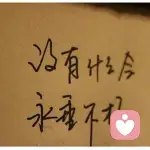 没有什么会
永垂不